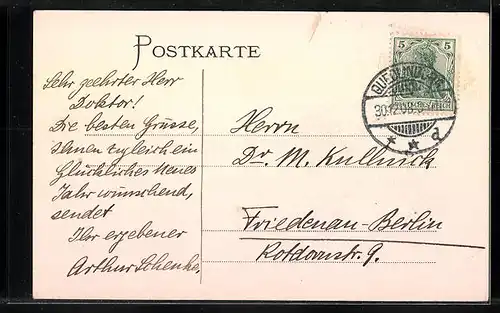 POSTKARTE
Sehr geehrter Herr
Doktor!
Die besten Grüsse,
Ihnen zugleich ein
Glückliches Neues
Jahr wünschend,
sendet
Ihr ergebener
Arthur Schenke.
5 5
DEUTSCHES REICH
QUEDLINBURG
30.12.
* * d
Herrn
Dr. M. Kullnick
Friedenau-Berlin
Rotdornstr. 9.